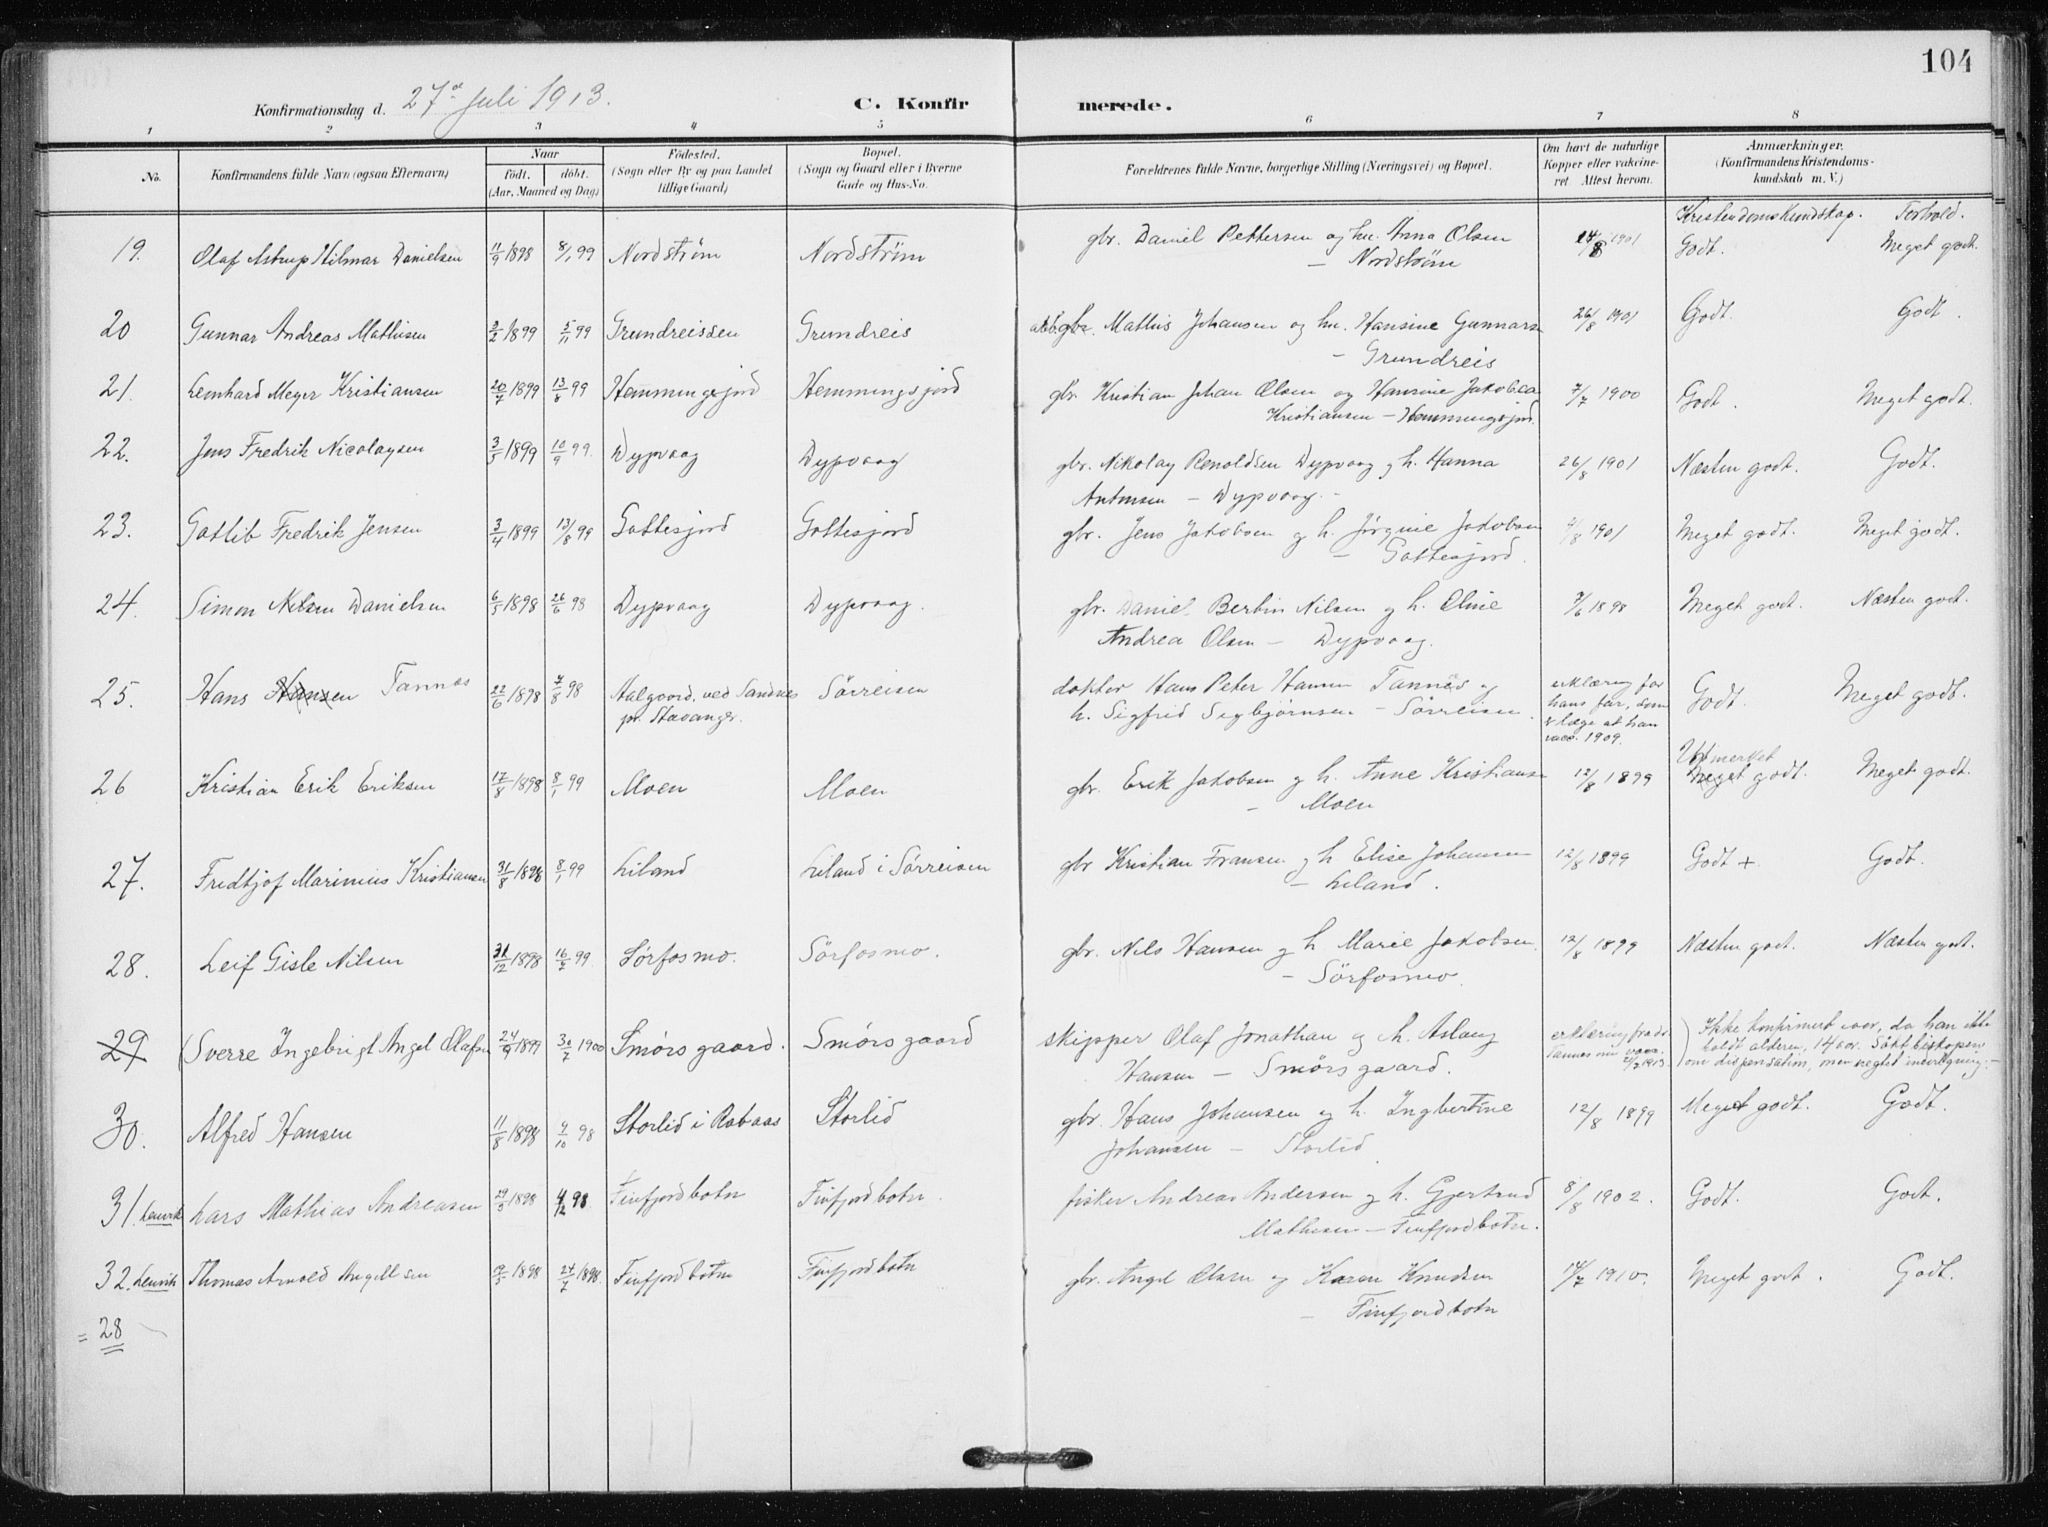 104
Konfirmationsdag d. 27de Juli 1913. C. Konfir merede.
1 2 3 4 5 6 7 8
No. Konfirmandens fulde Navn (ogsaa Efternavn) Naar født. døbt. (Aar, Maaned og Dag) Fødested. (Sogn eller By og paa Landet tillige Gaard) Bopæl. (Sogn og Gaard eller i Byerne Gade og Hus-No. Forældrenes fulde Navne, borgerlige Stilling (Næringsvei) og Bopæl. Om havt de naturlige Kopper eller vakcineret Attest herom. Anmærkninger. (Konfirmandens Kristendomskundskab m. V.)
Kristendomskundskap. Forhold.
19. Olaf Astrup Hilmar Danielsen 11/9 1898 8/1 99 Nordstrøm Nordstrøm gbr. Daniel Pettersen og hu. Anna Olsen 24/8 1901 Godt. Meget godt.
– Nordstrøm
20 Gunnar Andreas Mathisen 3/2 1899 5/11 99 Grundreissen Grundreis gbr. Mathis Johansen og hu. Hansine Gunnars 26/8 1901 Godt. Godt.
– Grundreis
21. Lenhard Meyer Kristiansen 20/7 1899 13/8 99 Hemmingsjord Hemmingsjord gbr. Kristian Johan Olsen og Hansine Jakobea 7/7 1900 Godt. Meget godt.
Kristiansen – Hemmingsjord.
22. Jens Fredrik Nicolaysen 3/5 1899 10/9 99. Dypvaag Dypvaag gbr. Nikolay Renoldsen Dypvaag og h. Hanna 26/8 1901 Næsten godt. Godt.
Antonsen – Dypvaag. –
23. Gotlib Fredrik Jensen 3/4 1899 13/8 99 Gottesjord Gottesjord gbr. Jens Jakobsen og h. Jørgine Jakobsen /8 1901 Meget godt. Meget godt.
– Gottesjord.
24. Simon Nilsen Danielsen 6/5 1898 26/6 98 Dypvaag Dypvaag. gbr. Daniel Berbin Nilsen og h. Oline 7/6 1898 Meget godt. Næsten godt.
Andrea Olsen – Dypvaag.
25. Hans Hansen Tannæs 22/6 1898 7/8 98 Aalgaard, ved Sandnes Sørreisen doktor Hans Peter Hansen Tannæs og erklæring fra Godt. Meget godt.
pr. Stavanger. h. Sigfrid Sigbjørnsen – Sørreisen. hans far, som
er læge at han
vacc. 1909.
Utmerket
26 Kristian Erik Eriksen 17/8 1898 8/1 99 Moen Moen gbr. Erik Jakobsen og h. Anne Kristianse 12/8 1899 Meget godt. Meget godt.
– Moen
27. Fredtjof Marinius Kristiansen 31/8 1898 8/1 99 Liland Liland i Sørreisen gbr Kristian Fransen og h Elise Johansen 12/8 1899 Godt +. Godt.
– Liland.
28. Leif Gisle Nilsen 31/12 1898 16/7 99 Sørfosmo. Sørfosmo. gbr. Nils Hansen og h Marie Jakobsen. 12/8 1899 Næsten godt. Næsten godt.
– Sørfosmo.
29 (Sverre Ingebrigt Angel Olafsn 24/9 1899 30/7 1900 Smørsgaard. Smørsgaard skipper Olaf Jonathan og h. Aslaug erklæring fra dr. ) Ikke konfirmert iaar, da han ikke
Hansen – Smørsgaard. Tannes om vacc. holdt alderen, 14 aar. Søkt biskopen
21/7 1913 om dispensation, men negtet indvilgning. –
30. Alfred Hansen 11/8 1898 9/10 98 Storlid i Rabaas Storlid gbr. Hans Johansen og h. Ingbertine 12/8 1899 Meget godt. Godt.
Johansen – Storlid
31. Lenvik Lars Mathias Andreasen 29/5 1898 4/12 98 Finfjordbotn Finfjordbotn. fisker Andreas Andersen og h. Gjertrud 8/8 1902. Godt. Godt.
Mathisen – Finfjordbotn.
32. Lenvik Thomas Arnold Angellsen 19/5 1898 24/7 1898. Finfjordbotn Finfjordbotn gbr. Angel Olsen og Karen Knudsen 14/7 1910. Meget godt. Godt.
– Finfjordbotn
= 28